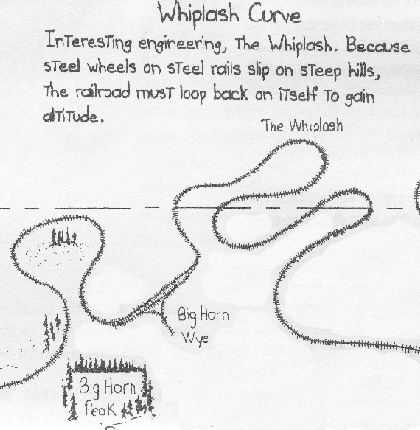 Whiplash Curve
Interesting engineering, The Whiplash. Because
steel wheels on steel rails slip on steep hills,
the railroad must loop back on itself to gain
altitude.
The Whiplash
Big Horn
Wye
Big Horn
Peak